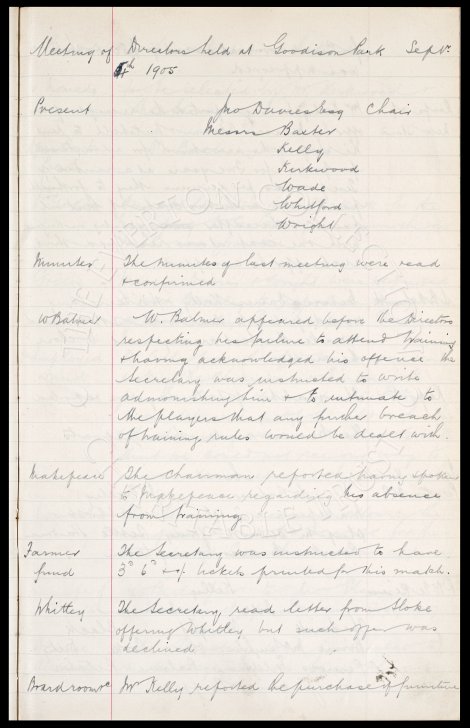 Meeting of Directors held at Goodison Park Septr
4th 1905
Present Jno Davies Esq Chair
Messrs Baxter
Kelly
Kirkwood
Wade
Whitford
Wright
Minutes The minutes of last meeting were read
& confirmed
W Balmer W. Balmer appeared before the Directors
respecting his failure to attend training
& having acknowledged his offence the
Secretary was instructed to write
admonishing him & to intimate to
the players that any further breach
of training rules would be dealt with.
Makepeace The Chairman reported having spoken
to Makepeace regarding his absence
from training
Farmer The Secretary was instructed to have
fund 3d 6d & 1/- tickets printed for this match.
Whitley The Secretary read letter from Stoke
offering Whitley but such offer was
declined
Boardroom Mr Kelly reported the purchase of furniture